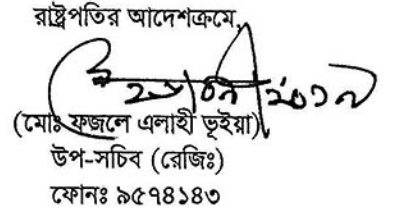 রাষ্ট্রপতির আদেশক্রমে,
(মোঃ ফজলে এলাহী ভূইয়া)
উপ-সচিব (রেজিঃ)
ফোনঃ ৯৫৭৪১৪৩